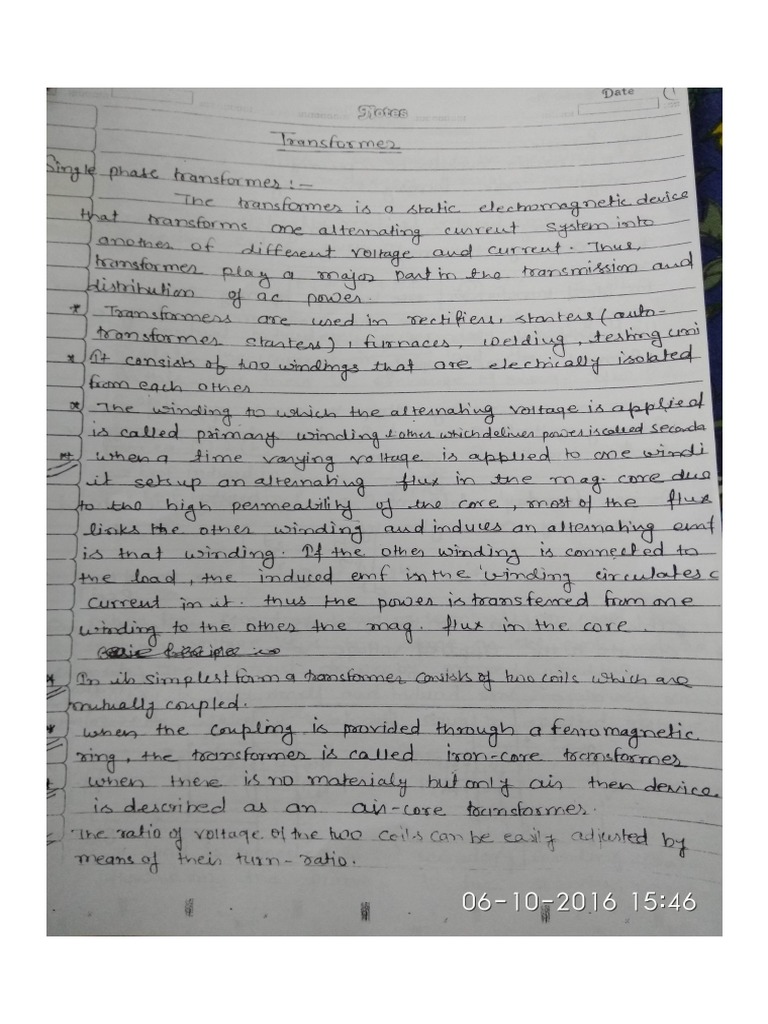 Date
Notes
Transformer
Single phase transformer :-
The transformer is a static electromagnetic device
that transforms one alternating current system into
another of different voltage and current. Thus,
transformer play a major part in the transmission and
distribution of ac power.
* Transformers are used in rectifiers, starters (auto-
transformer starters), furnaces, welding, testing
* It consists of two windings that are electrically isolated
from each other
* The winding to which the alternating voltage is applied
is called primary winding & other which delivers power is called seconda
* when a time varying voltage is applied to one windi
it sets up an alternating flux in the mag. core due
to the high permeability of the core, most of the flux
links the other winding and induces an alternating emf
is that winding. If the other winding is connected to
the load, the induced emf in the winding circulates c
current in it. thus the power is transferred from one
winding to the other the mag. flux in the core.
* In its simplest form a transformer consists of two coils which are
mutually coupled.
* when the coupling is provided through a ferromagnetic
ring, the transformer is called iron-core transformer
when there is no materialy but only air then device
is described as an air-core transformer.
The ratio of voltage of the two coils can be easily adjusted by
means of their turn-ratio.
06-10-2016 15:46